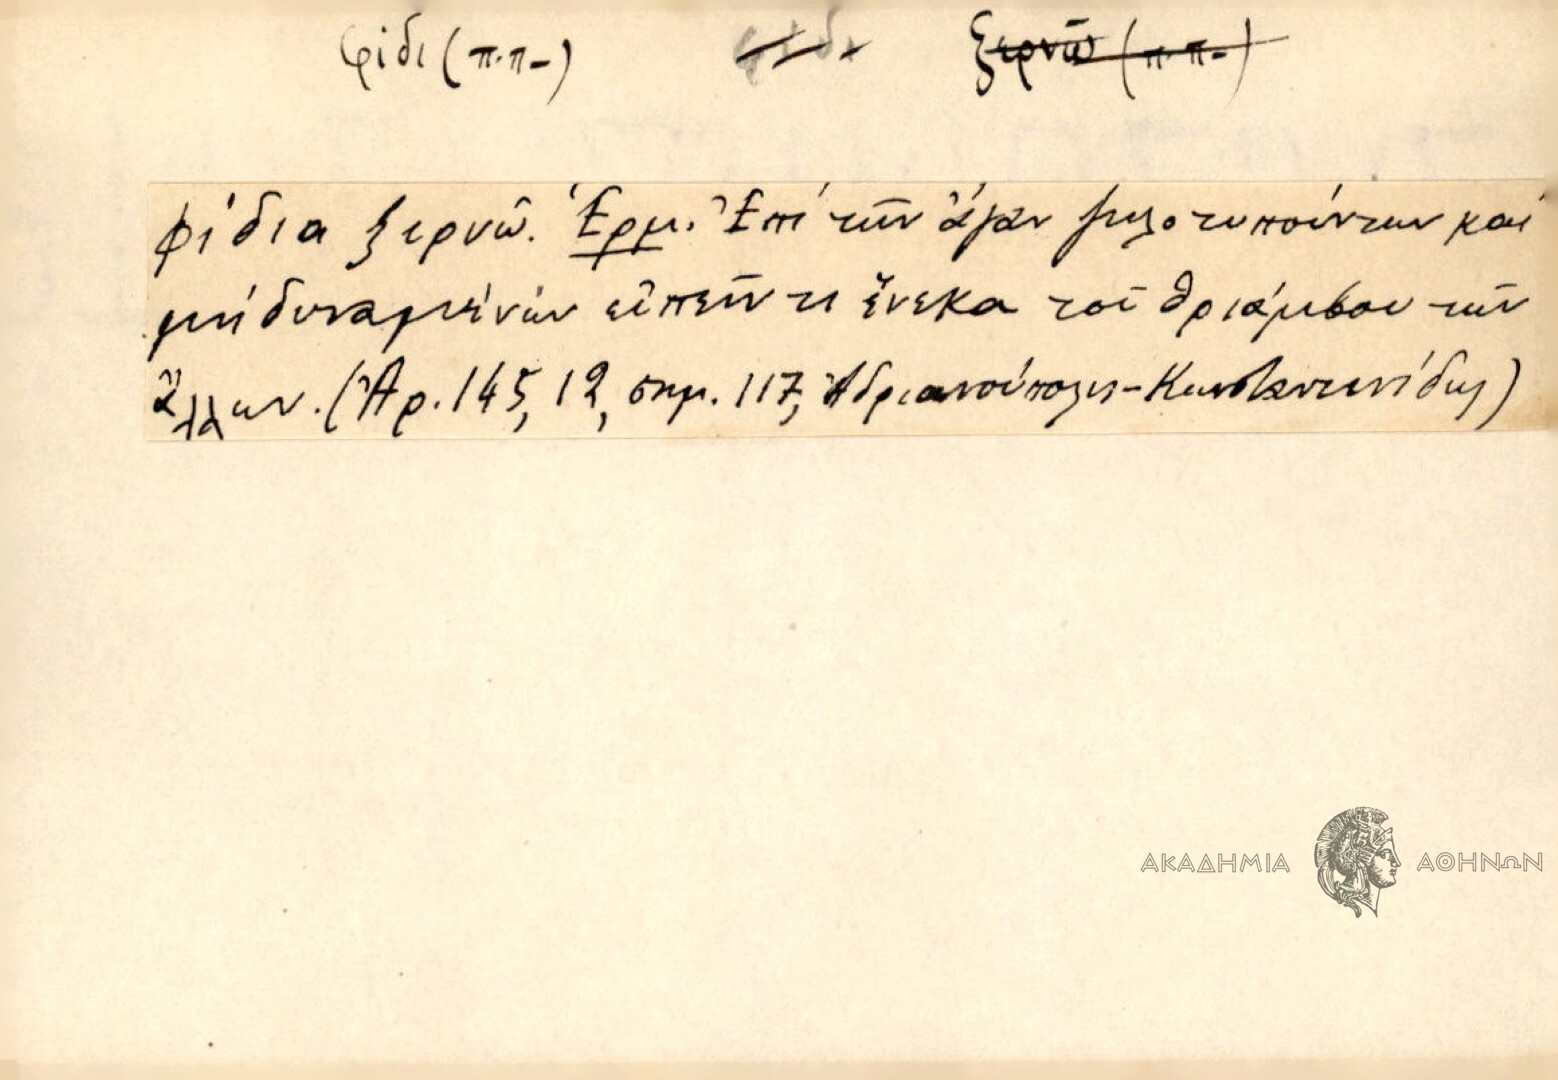 φίδι (π.π-) ξερνῶ (π.π-)
φίδια ξερνῶ. Ἑρμ. Ἐπὶ τῶν ἄγαν ζηλοτυπούντων καὶ
μὴ δυναμένων εἰπεῖν τι ἕνεκα τοῦ θριάμβου τῶν
ἄλλων. (Ἀρ. 145, 12, σημ. 117, Ἀδριανούπολις - Κωνσταντινίδης)
ΑΚΑΔΗΜΙΑ ΑΘΗΝΩΝ